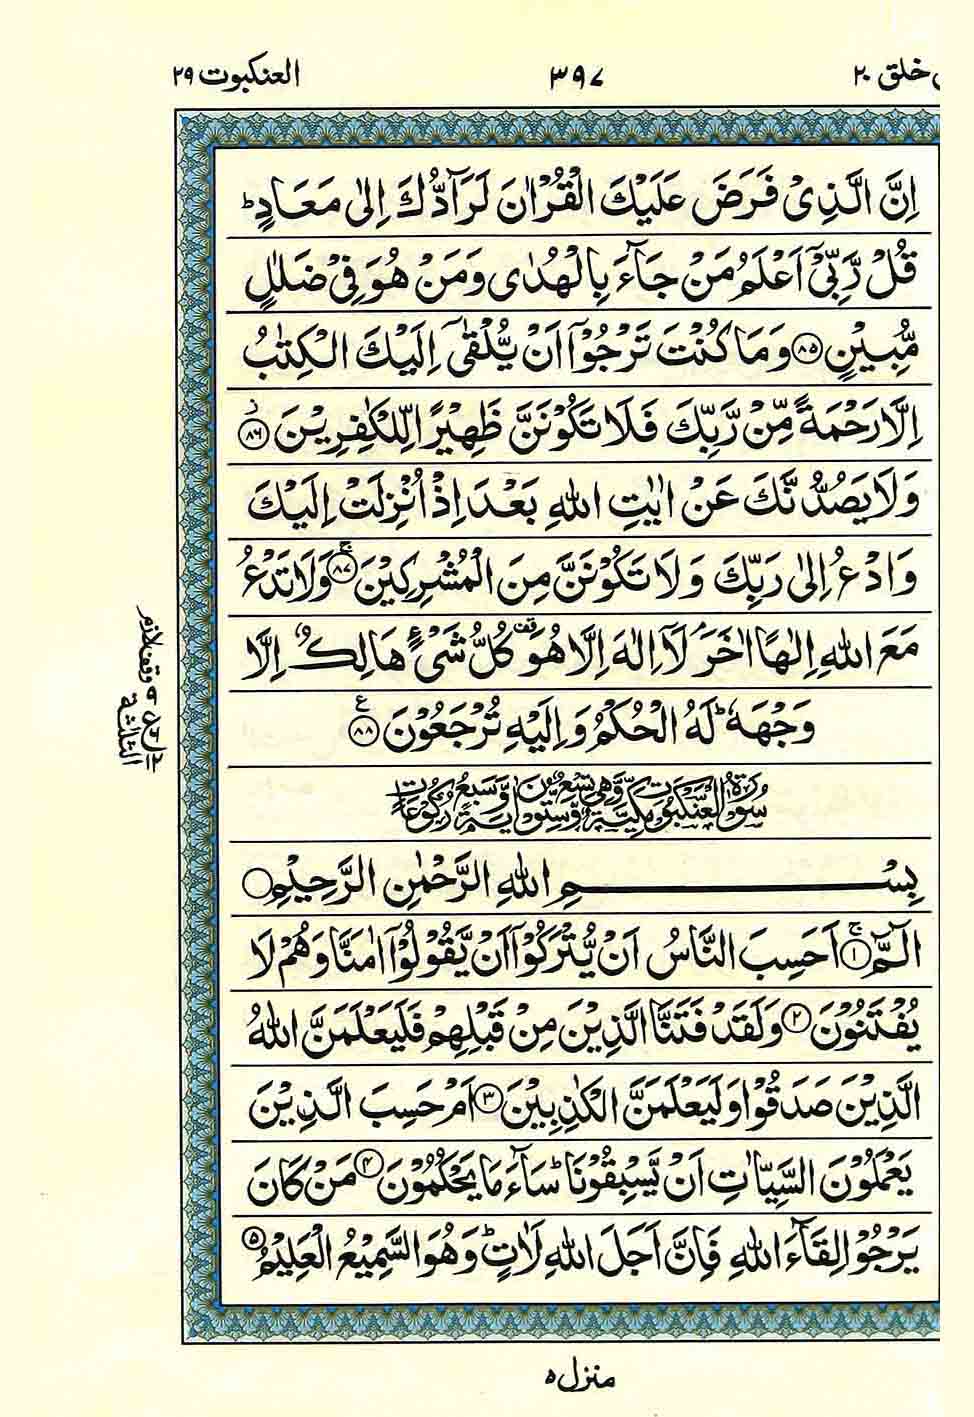 خلق ٢٠
٣٩٧
العنكبوت ٢٩
اِنَّ الَّذِىْ فَرَضَ عَلَيْكَ الْقُرْاٰنَ لَرَآدُّكَ اِلٰى مَعَادٍ ؕ
قُلْ رَّبِّىْۤ اَعْلَمُ مَنْ جَآءَ بِالْهُدٰى وَمَنْ هُوَ فِىْ ضَلٰلٍ
مُّبِيْنٍ ﴿٨٥﴾ وَمَا كُنْتَ تَرْجُوْۤا اَنْ يُّلْقٰٓى اِلَيْكَ الْكِتٰبُ
اِلَّا رَحْمَةً مِّنْ رَّبِّكَ فَلَا تَكُوْنَنَّ ظَهِيْرًا لِّلْكٰفِرِيْنَ ﴿٨٦﴾ ز
وَلَا يَصُدُّنَّكَ عَنْ اٰيٰتِ اللّٰهِ بَعْدَ اِذْ اُنْزِلَتْ اِلَيْكَ
وَادْعُ اِلٰى رَبِّكَ وَلَا تَكُوْنَنَّ مِنَ الْمُشْرِكِيْنَ ﴿٨٧﴾ ۚ وَلَا تَدْعُ
مَعَ اللّٰهِ اِلٰهًا اٰخَرَ ۘ لَاۤ اِلٰهَ اِلَّا هُوَ قف كُلُّ شَىْءٍ هَالِكٌ اِلَّا
وَجْهَهٗ ؕ لَهُ الْحُكْمُ وَاِلَيْهِ تُرْجَعُوْنَ ﴿٨٨﴾ ع
وقف لازم
الثلثة
سُوْرَةُ الْعَنْكَبُوْتِ مَكِّيَّةٌ وَّهِىَ تِسْعٌ وَّسِتُّوْنَ اٰيَةً وَّسَبْعُ رُكُوْعَاتٍ
بِسْمِ اللّٰهِ الرَّحْمٰنِ الرَّحِيْمِ
الٓمّٓ ﴿١﴾ ۚ اَحَسِبَ النَّاسُ اَنْ يُّتْرَكُوْۤا اَنْ يَّقُوْلُوْۤا اٰمَنَّا وَهُمْ لَا
يُفْتَنُوْنَ ﴿٢﴾ وَلَقَدْ فَتَنَّا الَّذِيْنَ مِنْ قَبْلِهِمْ فَلَيَعْلَمَنَّ اللّٰهُ
الَّذِيْنَ صَدَقُوْا وَلَيَعْلَمَنَّ الْكٰذِبِيْنَ ﴿٣﴾ اَمْ حَسِبَ الَّذِيْنَ
يَعْمَلُوْنَ السَّيِّاٰتِ اَنْ يَّسْبِقُوْنَا ؕ سَآءَ مَا يَحْكُمُوْنَ ﴿٤﴾ مَنْ كَانَ
يَرْجُوْا لِقَآءَ اللّٰهِ فَاِنَّ اَجَلَ اللّٰهِ لَاٰتٍ ؕ وَهُوَ السَّمِيْعُ الْعَلِيْمُ ﴿٥﴾
منزل ٥